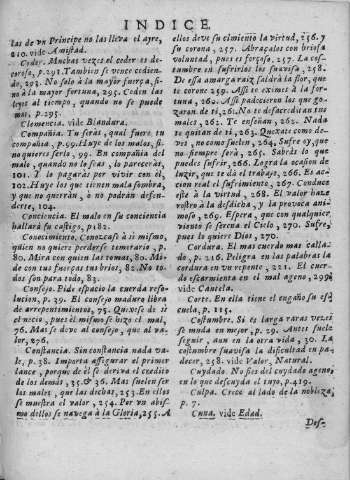 INDICE.
las de vn Principe no las lleva el ayre,
210. vide Amistad.
Ceder. Muchas vezes el ceder es de-
coroso, p.291. Tambien se vence cedien-
do, 293. No solo à la mayor fuerça, si-
no à la mayor fortuna, 295. Ceden las
leyes al tiempo, quando no se puede
mas, p.295.
Clemencia. vide Blandura.
Compañia. Tu seràs, qual fuere tu
compañia, p.99. Huye de los malos, si
no quieres serlo, 99. En compañia del
malo, quando no lo seas, lo pareceràs,
101. Y lo pagaràs por vivir con èl,
102. Huye los que tienen mala sombra,
y que no querràn, ò no podràn defen-
derte, 104.
Conciencia. El malo en su conciencia
hallarà su castigo, p182.
Conocimiento. Conozcase à si mismo,
quien no quiere perderse temerario, p.
80. Mira con quien las tomas, 80. Mi-
de con tus fuerças tus brios, 82. No to-
dos son para todo, 83.
Consejo. Pide espacio la cuerda reso-
lucion, p.29. El consejo maduro libra
de arrepentimientos, 75. Quexese de si
el necio, pues èl mismo se hizo el mal,
76. Mas se deve al consejo, que al va-
lor, 276.
Constancia. Sin constancia nada va-
le, p.28. Importa assegurar el primer
lance, porque de èl se deriva el credito
de los demàs, 35. & 36. Mas suelen ser
los males, que las dichas, 253. En ellos
se muestra el valor, 254. Por vn abis-
mo dellos se navega à la Gloria, 255. A
ellos deve su cimiento la virtud, 256. y
su corona, 257. Abraçalos con briosa
voluntad, pues es forçoso, 257. La cos-
tumbre en sufrirlos los suaviza, 258.
De essa amarga raiz saldrà la flor, que
te corone 259. Assi te eximes à la for-
tuna, 260. Assi padecieron los que go-
zaron de ti, 261. No te desacreditan tus
males, 261. Te enseñan, 262. Nada
te quitan de ti, 263. Quexate como de-
ves, no como suelen, 264. Sufre oy, que
no siempre serà, 265. Sabràs lo que
puedes sufrir, 266. Logra la ocasion de
luzir, que te dà el trabajo, 266. Es ac-
cion real el sufrimiento, 267. Conduce
este à la virtud, 268. El valor haze
rostro à la desdicha, y la provoca ani-
moso, 269. Espera, que con qualquier
viento se acerca el Cielo, 270. Sufre,
pues lo quiere Dios, 270.
Cordura. El mas cuerdo mas calla-
do, p.216. Peligra en las palabras la
cordura en vn repente, 221. El cuer-
do escarmienta en el mal ageno, 299.
vide Cautela.
Corte. En ella tiene el engaño su es-
cuela, p.115.
Costumbre. Si es larga raras vezes
se muda en mejor, p.29. Antes suele
seguir, aun en la otra vida, 30. La
costumbre suaviza la dificultad en pa-
decer, 258. vide Valor, Natural.
Cuydado. No fies del cuydado ageno,
en lo que descuyda el tuyo, p.419.
Culpa. Crece al lado de la nobleza,
p.7.
Cuna, vide Edad.
Des-